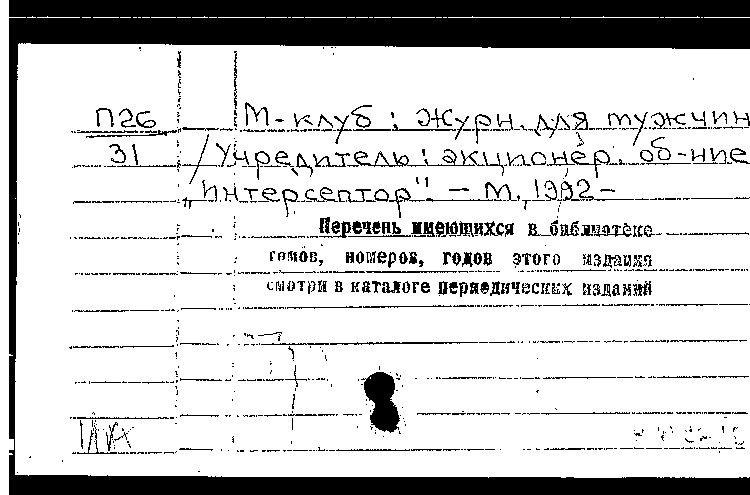 П26
31
М-клуб : Журн. для мужчин
/ Учредитель : акционер. об-ние
„Интерсептор". – М., 1992 –
Перечень имеющихся в библиотеке
томов, номеров, годов этого издания
смотри в каталоге периодических изданий